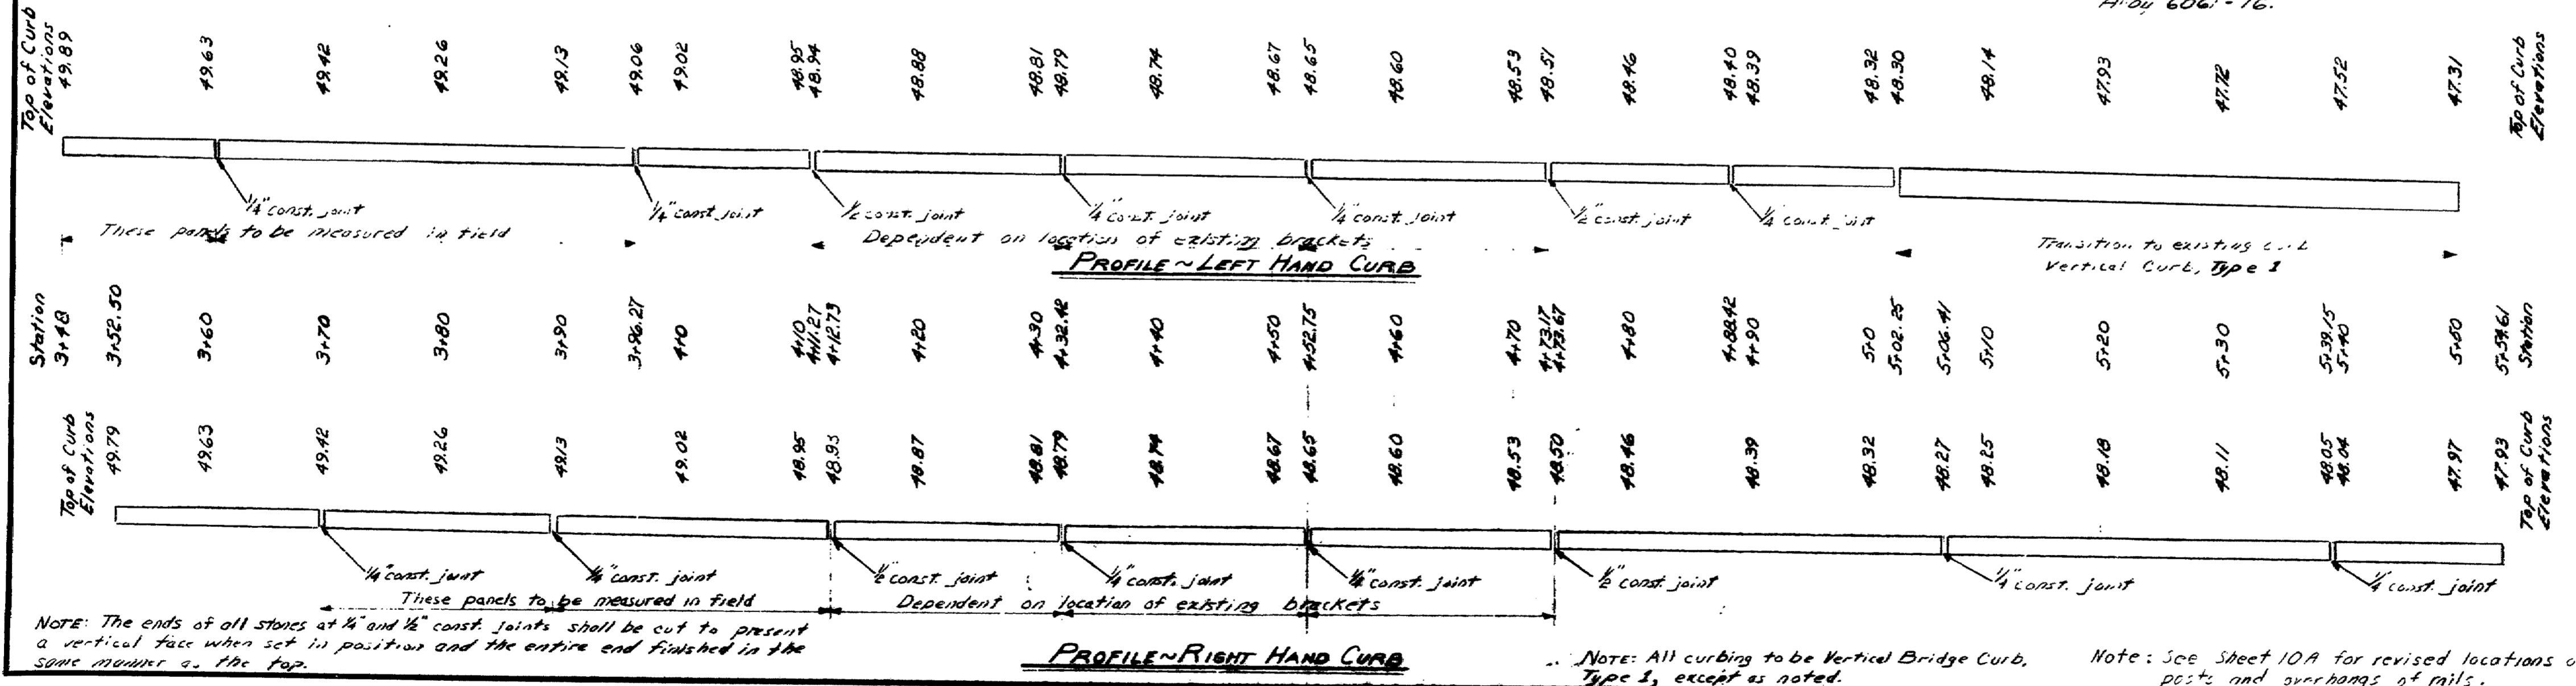 Alloy 6061-T6.
Top of Curb
Elevations
49.89 49.63 49.42 49.26 49.13 49.06 49.02 48.95 48.94 48.88 48.81 48.79 48.74 48.67 48.65 48.60 48.53 48.51 48.46 48.40 48.39 48.32 48.30 48.14 47.93 47.72 47.52 47.31
Top of Curb
Elevations
1/4" const. joint
1/4" const. joint
1/2" const. joint
1/4" const. joint
1/4" const. joint
1/2" const. joint
1/4" const. joint
These panels to be measured in field
Dependent on location of existing brackets
Transition to existing curb
Vertical Curb, Type 1
PROFILE ~ LEFT HAND CURB
Station
3+48 3+52.50 3+60 3+70 3+80 3+90 3+96.27 4+0 4+10 4+11.27 4+12.73 4+20 4+30 4+32.42 4+40 4+50 4+52.75 4+60 4+70 4+73.17 4+73.67 4+80 4+88.42 4+90 5+0 5+02.25 5+06.41 5+10 5+20 5+30 5+39.15 5+40 5+50 5+54.61
Station
Top of Curb
Elevations
49.79 49.63 49.42 49.26 49.13 49.02 48.95 48.93 48.87 48.81 48.79 48.74 48.67 48.65 48.60 48.53 48.50 48.46 48.39 48.32 48.27 48.25 48.18 48.11 48.05 48.04 47.97 47.93
Top of Curb
Elevations
1/4" const. joint
1/4" const. joint
1/2" const. joint
1/4" const. joint
1/4" const. joint
1/2" const. joint
1/4" const. joint
1/4" const. joint
These panels to be measured in field
Dependent on location of existing brackets
NOTE: The ends of all stones at 1/4" and 1/2" const. joints shall be cut to present
a vertical face when set in position and the entire end finished in the
same manner as the top.
PROFILE ~ RIGHT HAND CURB
NOTE: All curbing to be Vertical Bridge Curb,
Type 1, except as noted.
Note: See Sheet 10A for revised locations
posts and overhangs of rails.